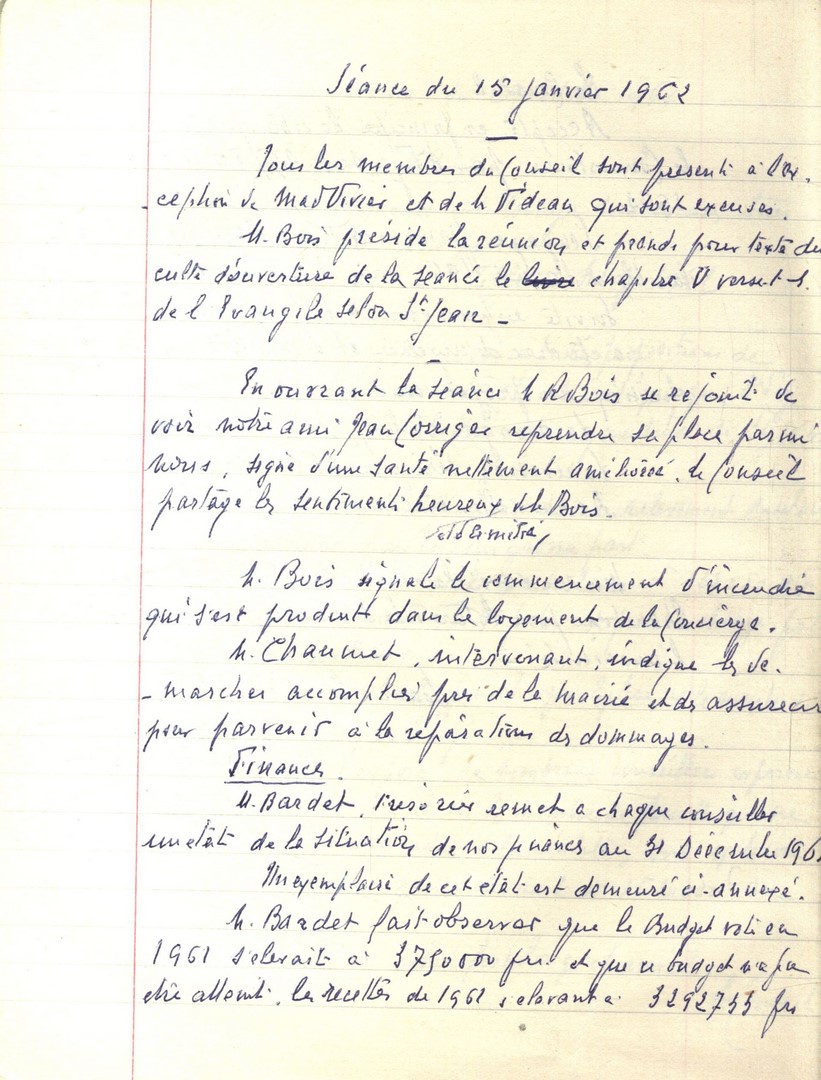 Séance du 15 janvier 1962
Tous les membres du Conseil sont présents à l'ex-
-ception de Mad Vivier et de M Videau qui sont excusés.
M. Bois préside la réunion et prends pour texte du
culte d'ouverture de la séance le livre chapitre V verset 1.
de l'Evangile selon St Jean -
En ouvrant la séance M R Bois se réjouit de
voir notre ami Jean reprendre sa place parmi
nous, signe d'une santé nettement améliorée. Le Conseil
partage les sentiments heureux de M Bois.
M. Bois signale le commencement d'incendie
qui s'est produit dans le logement de la Concierge.
M. Chaumet, intervenant, indique les dé-
-marches accomplies près de la Mairie et des assureurs
pour parvenir à la réparations des dommages.
Finances.
M. Bardet, Trésorier remet a chaque conseiller
un état de la situation de nos finances au 31 Décembre 1961
Un exemplaire de cet état est demeuré ci-annexé.
M. Bardet fait observer que le Budget voté en
1961 s'élevait à 3750000 frs. et que ce budget n'a pu
etre atteint, les recettes de 1961 s'élevant à 3292733 frs